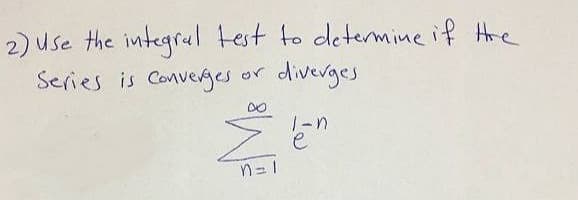 2) Use the integral test to determine if the
Series is Converges or diverges
∞
Σ e^{1-n}
n=1